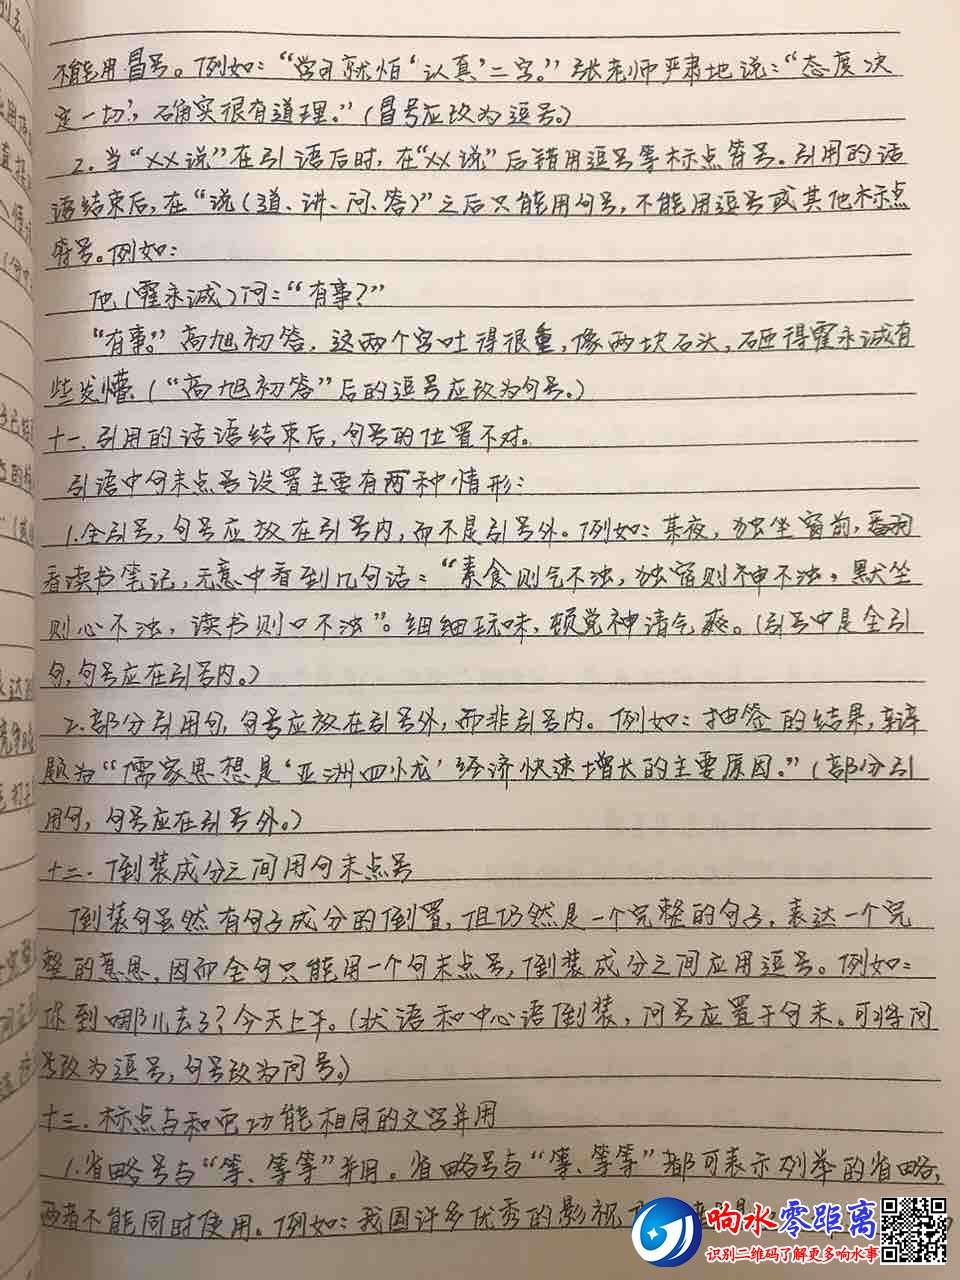 不能用冒号。例如：“学习就怕‘认真’二字。”张老师严肃地说：“态度决
定一切’，确实很有道理。”（冒号应改为逗号。）
2.当“××说”在引语后时，在“××说”后错用逗号等标点符号。引用的话
语结束后，在“说（道、讲、问、答）”之后只能用句号，不能用逗号或其他标点
符号。例如：
他（霍永诚）问：“有事？”
“有事。”高旭初答，这两个字吐得很重，像两块石头，砸得霍永诚有
些发懵（“高旭初答”后的逗号应改为句号。）
十一.引用的话语结束后，句号的位置不对。
引语中句末点号设置主要有两种情形：
1.全引号，句号应放在引号内，而不是引号外。例如：某夜，独坐窗前，翻
看读书笔记，无意中看到几句话：“素食则气不浊，独宿则神不浊，默坐
则心不浊，读书则口不浊”。细细玩味，顿觉神清气爽。（引号中是全引
句，句号应在引号内。）
2.部分引用句，句号应放在引号外，而非引号内。例如：抽签的结果，辩
题为“儒家思想是‘亚洲四小龙’经济快速增长的主要原因。”（部分引
用句，句号应在引号外。）
十二.倒装成分之间用句末点号
倒装句虽然有句子成分的倒置，但仍然是一个完整的句子，表达一个完
整的意思，因而全句只能用一个句末点号，倒装成分之间应用逗号。例如：
你到哪儿去了？今天上午。（状语和中心语倒装，问号应置于句末。可将问
号改为逗号，句号改为问号。）
十三.标点与和它功能相同的文字并用
1.省略号与“等、等等”并用。省略号与“等、等等”都可表示列举的省略，
两者不能同时使用。例如：我国许多优秀的影视
响水零距离
识别二维码了解更多响水事